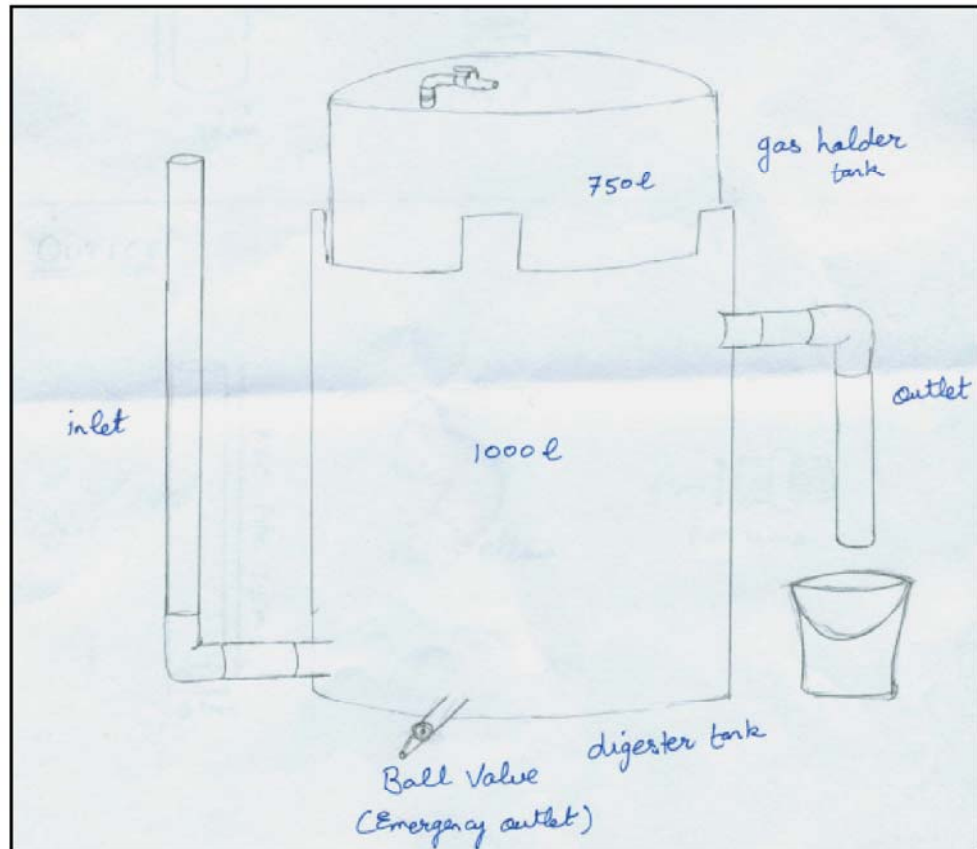 gas holder
tank
750l
inlet
outlet
1000l
digester tank
Ball Valve
(Emergency outlet)